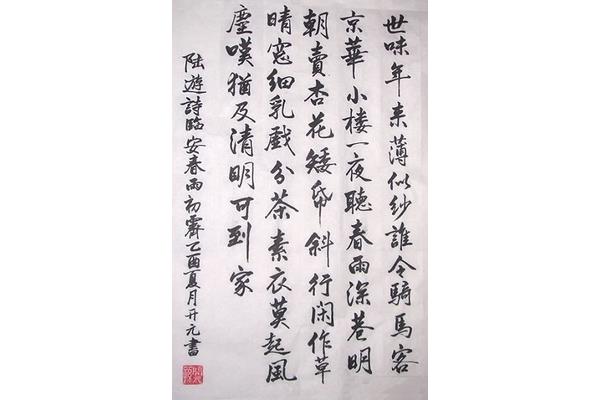 世味年来薄似紗誰令騎馬客
京華小楼一夜聽春雨深巷明
朝賣杏花矮帋斜行闲作草
晴窓细乳戲分茶素衣莫起風
塵嘆猶及清明可到家
陆遊詩臨安春雨初霽乙酉夏月开元書